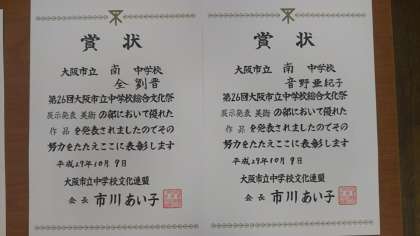 賞状
大阪市立 南 中学校
全 劉晋
第26回大阪市立中学校総合文化祭
展示発表 美術 の部において優れた
作品 を発表されましたのでその
努力をたたえここに表彰します
平成29年10月9日
大阪市立中学校文化連盟
会長 市川あい子
賞状
大阪市立 南 中学校
音野亜紀子
第26回大阪市立中学校総合文化祭
展示発表 美術 の部において優れた
作品 を発表されましたのでその
努力をたたえここに表彰します
平成29年10月9日
大阪市立中学校文化連盟
会長 市川あい子